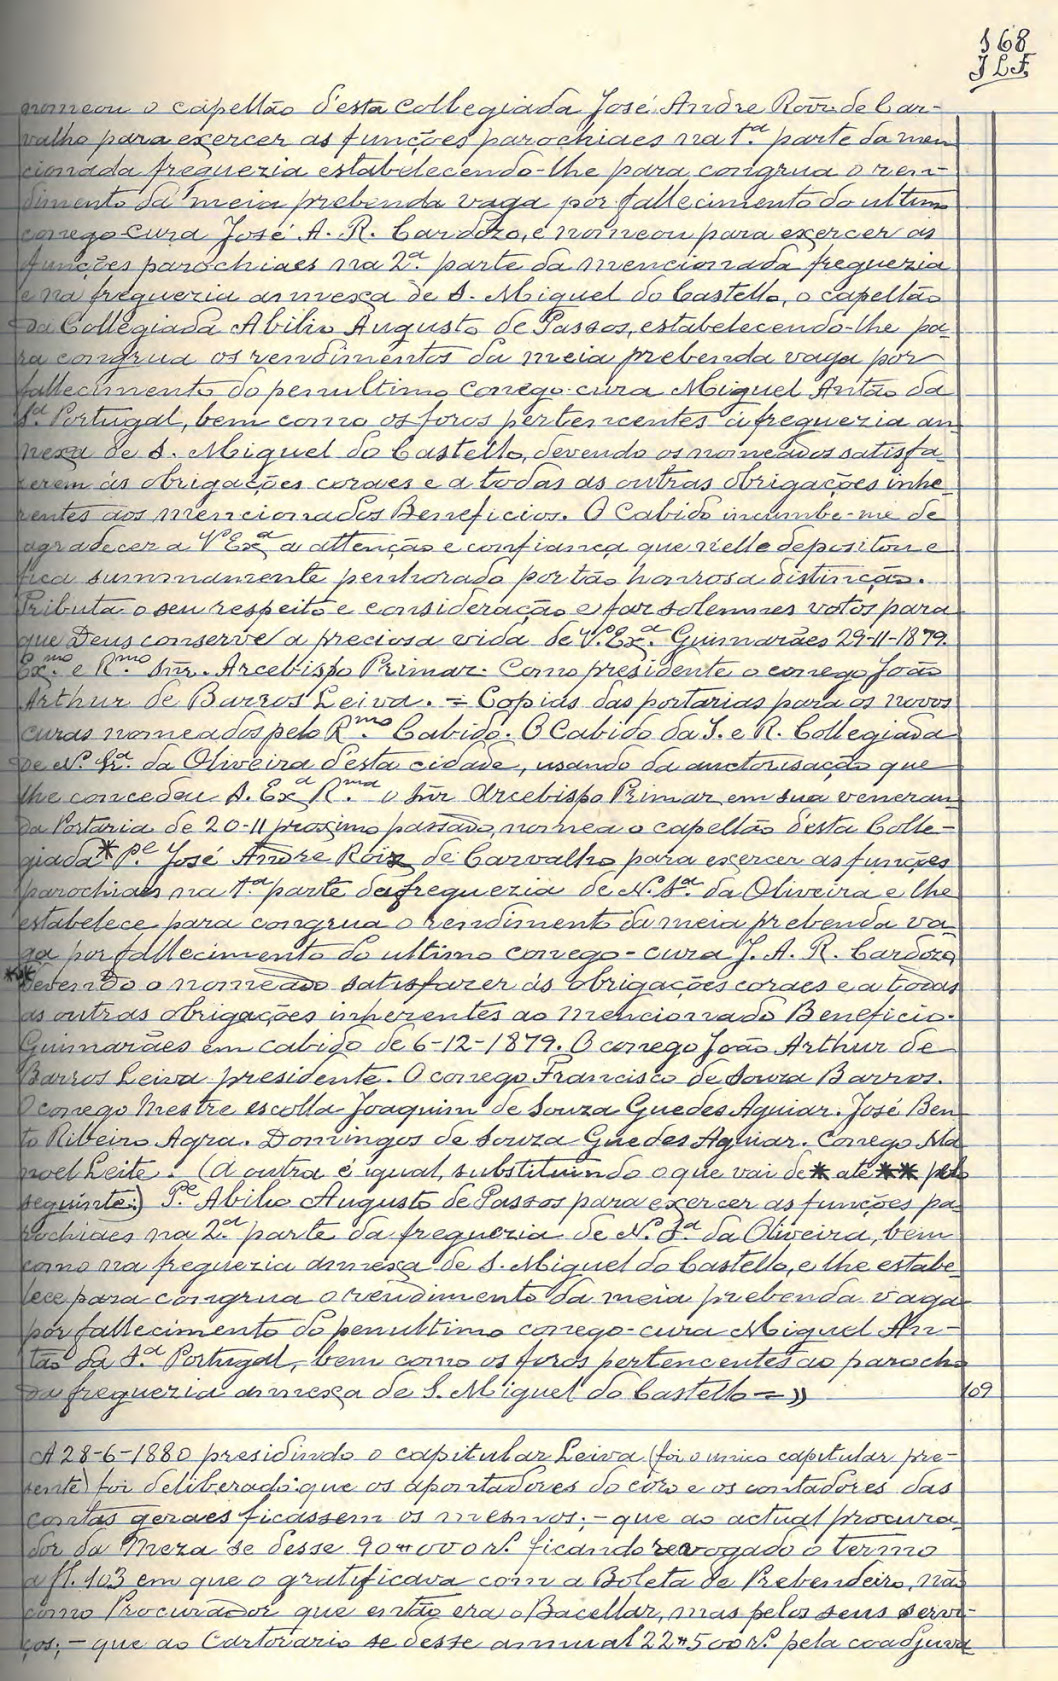 168
J L F.
nomeou o capellão d'esta Collegiada José Andre Roiz de Car-
valho para exercer as funções parochiaes na 1.ª parte da men
cionada freguezia estabelecendo-lhe para congrua o ren-
dimento da meia prebenda vaga por fallecimento do ultimo
conego-cura José A. R. Cardozo, e nomeou para exercer as
funções parochiaes na 2.ª parte da mencionada freguezia
e na freguezia annexa de S. Miguel do Castello, o capellão
da Collegiada Abilio Augusto de Passos, estabelecendo-lhe pa-
ra congrua os rendimentos da meia prebenda vaga por
fallecimento do penultimo conego-cura Miguel Antão da
S.ª Portugal, bem como os foros pertencentes á freguezia an-
nexa de S. Miguel do Castello, devendo os nomeados satisfa-
zerem ás obrigações coraes e a todas as outras obrigações inhe-
rentes aos mencionados Beneficios. O Cabido incumbe-me de
agradecer a V Exª a attenção e confiança que n'elle depositou e
fica summamente penhorado por tão honrosa distincção.
Tributa o seu respeito e consideração e faz solemnes votos para
que Deus conserve a preciosa vida de V. Ex.ª Guimarães 29-11-1879.
Ex.mo e R.mo Snr. Arcebispo Primaz. Como presidente o conego João
Arthur de Barros Leiva. = Copias das portarias para os novos
curas nomeados pelo R.mo Cabido. O Cabido da I. e R. Collegiada
de N. Sr.ª da Oliveira desta cidade, usando da auctorisação que
lhe concedeu S. Exª R.ma o Snr Arcebispo Primaz em sua veneran-
da Portaria de 20-11 proximo passado, nomea o capellão d'esta Colle-
giada * P.e José Andre Roiz de Carvalho para exercer as funções
parochiaes na 1.ª parte da freguezia de N. S.ª da Oliveira e lhe
estabelece para congrua o rendimento da meia prebenda va-
ga por fallecimento do ultimo conego-cura J. A. R. Cardozo,
** devendo o nomeado satisfazer ás obrigações coraes e a todas
as outras obrigações inherentes ao mencionado Beneficio.
Guimarães em cabido de 6-12-1879. O conego João Arthur de
Barros Leiva presidente. O conego Francisco de Souza Barros.
O conego Mestre escolla Joaquim de Souza Guedes Aguiar. José Ben-
to Ribeiro Agra. Domingos de Souza Guedes Aguiar. Conego Ma
noel Leite. (A outra é igual, substituindo o que vai de * até ** pelo
seguinte:) P.e Abilio Augusto de Passos para exercer as funções pa-
rochiaes na 2.ª parte da freguezia de N. S.ª da Oliveira, bem
como na freguezia annexa de S. Miguel do Castello, e lhe estabe-
lece para congrua o rendimento da meia prebenda vaga
por fallecimento do penultimo conego-cura Miguel An-
tão da S.ª Portugal, bem como os foros pertencentes ao parocho
da freguezia annexa de S. Miguel do Castello = »
109
A 28-6-1880 presidindo o capitular Leiva (foi o unico capitular pre-
sente) foi deliberado: que os apontadores do côro e os contadores das
contas geraes ficassem os mesmos; - que ao actual procura-
dor da Meza se desse 90#000 rs. ficando revogado o termo
a fl. 103 em que o gratificava com a Boleta de Prebendeiro, não
como Procurador que então era o Bacellar, mas pelos seus servi-
ços; - que ao Cartorario se desse annual 22#500 rs. pela coadjuva